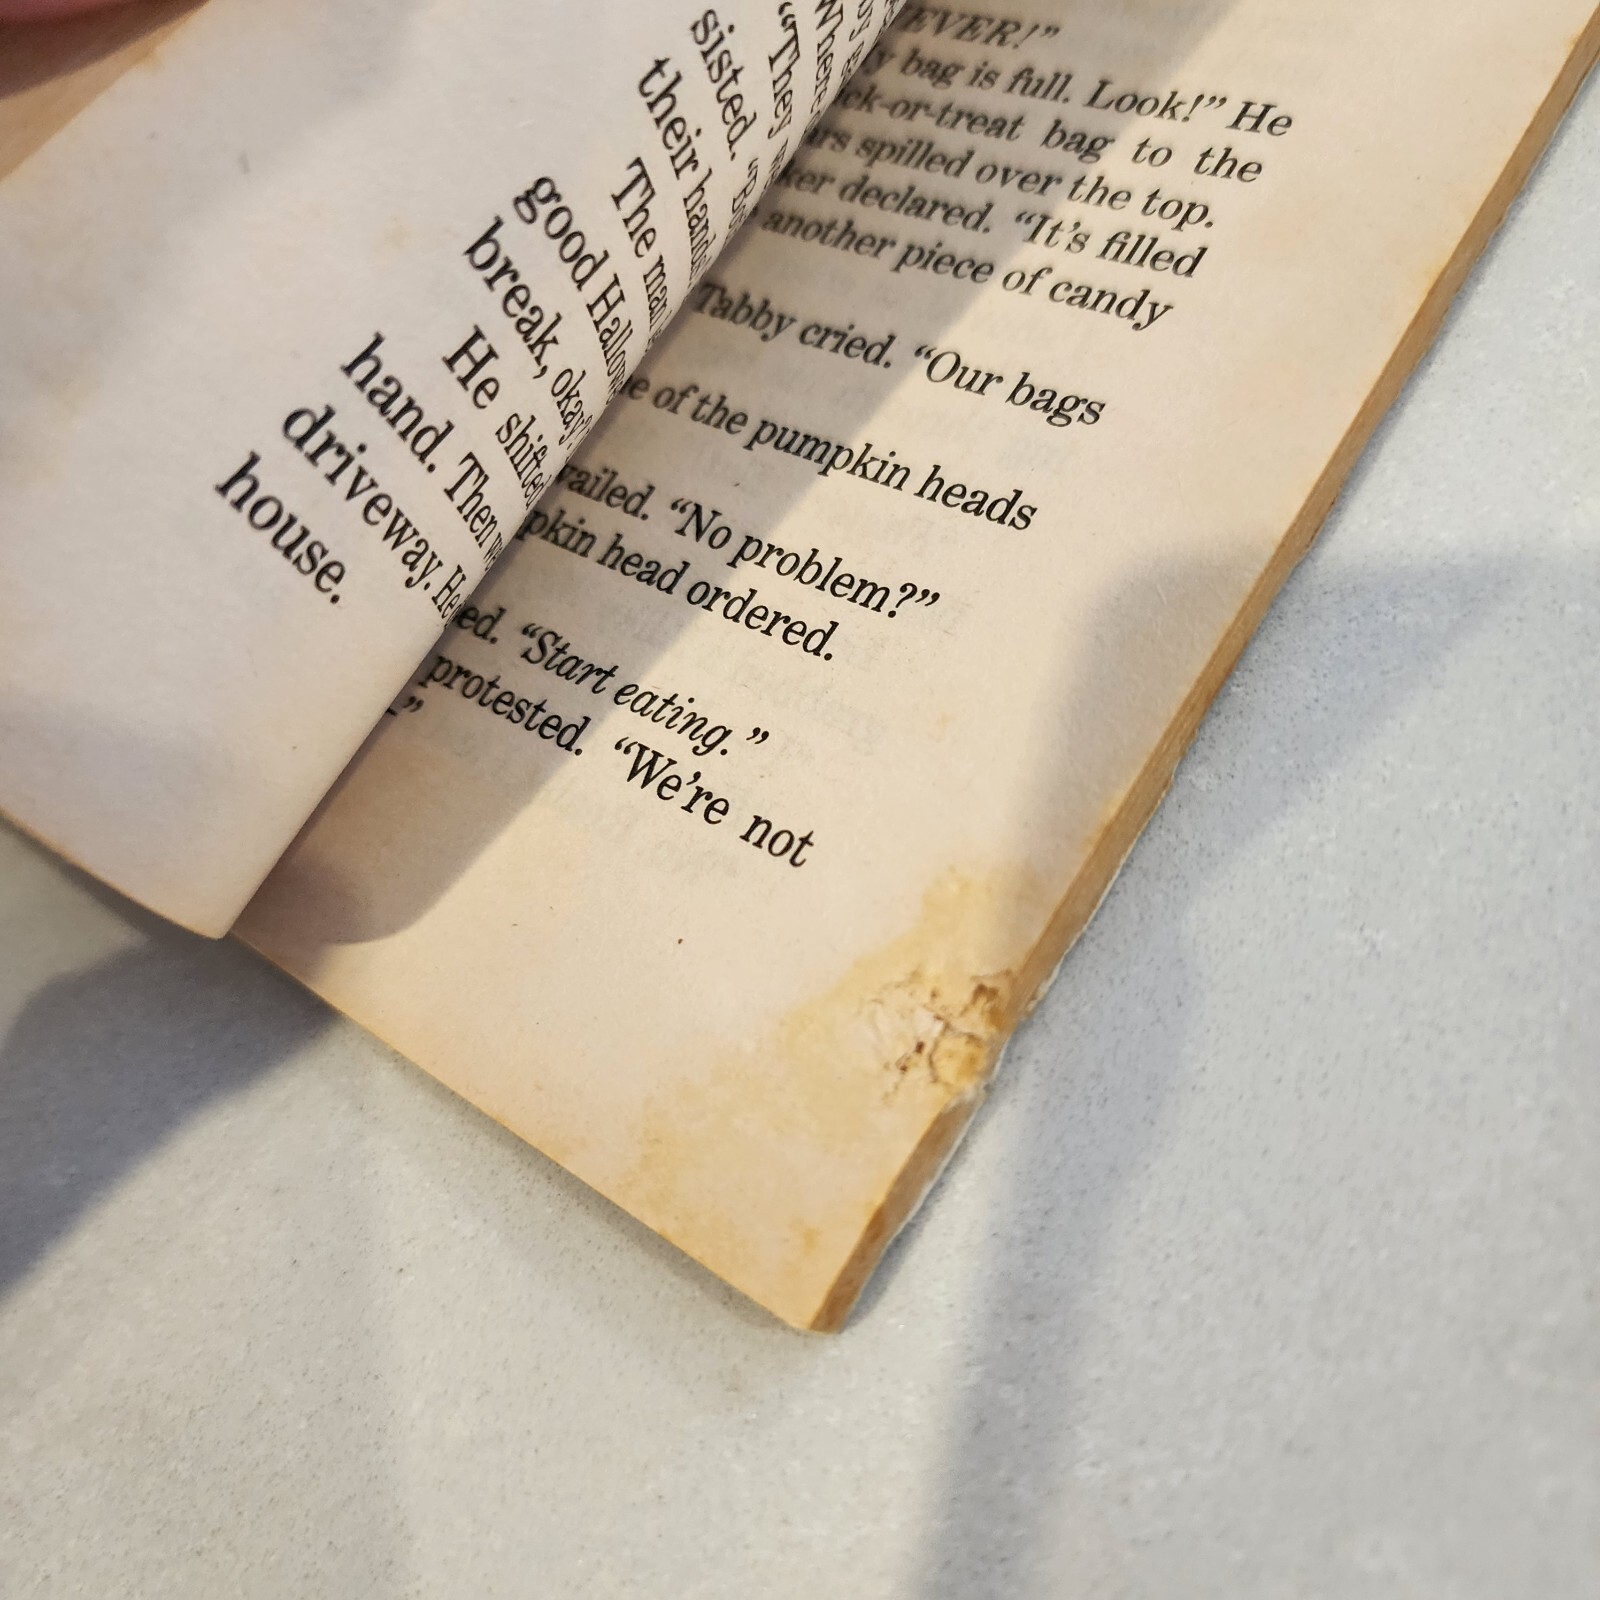 sisted.
their
The man
good
break, okay?
He shifted
hand. Then
driveway. He
house.
EVER!”
bag is full. Look!” He
ick-or-treat bag to the
ars spilled over the top.
ker declared. “It’s filled
another piece of candy
Tabby cried. “Our bags
of the pumpkin heads
vailed. “No problem?”
pkin head ordered.
ed. “Start eating.”
protested. “We’re not